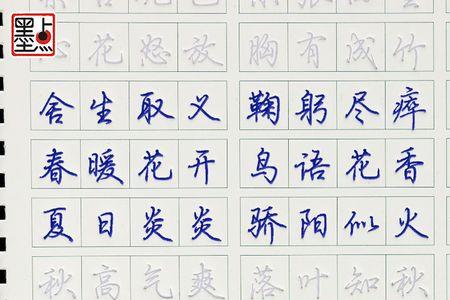 墨点
心花怒放 胸有成竹
舍生取义 鞠躬尽瘁
春暖花开 鸟语花香
夏日炎炎 骄阳似火
秋高气爽 落叶知秋